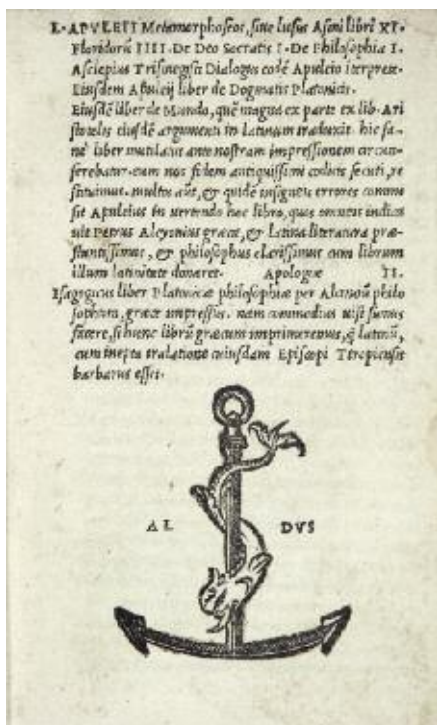 L. APVLEII Metamorphoseos, siue lusus Asini libri XI.
Floridorũ IIII. De Deo Socratis I. De Philosophia I.
Asclepius Trismegisti Dialogus eodẽ Apuleio iterprete.
Eiusdem Apuleij liber de Dogmatis Platonicis.
Eiusdẽ liber de Mundo, quẽ magna ex parte ex lib. Ari
stotelis eiusdẽ argumenti in latinum traduxit. hic sa-
nè liber mutilatus ante nostram impressionem circun-
ferebatur. eum nos fidem antiquissimi codicis secuti, re
stituimus. multos aũt, & quidẽ insigneis errores commi
sit Apuleius in uertendo hoc libro, quos omneis indica
uit Petrus Alcyonius græcæ, & latinæ literaturæ præ-
stantissimus, & philosophus clarissimus cum librum
illum latinitate donaret. Apologiæ II.
Isagogicus liber Platonicæ philosophiæ per Alcinoũ philo
sophum, græce impressus. nam commodius uisi sumus
facere, si hunc librũ græcum imprimeremus, q̃ latinũ,
cum inepta tralatione cuiusdam Episcopi Tropiensis
barbarus esset.
AL DVS